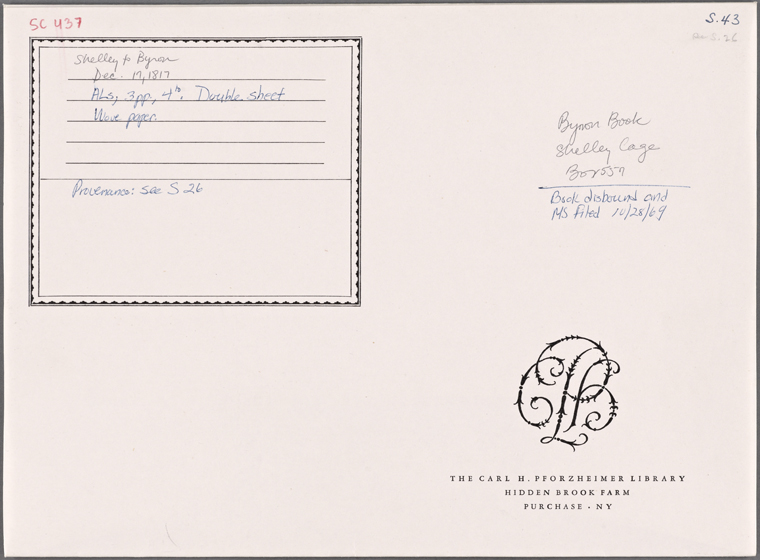 SC 437
S.43
Shelley to Byron
Dec. 17, 1817
ALs, 3pp., 4to. Double sheet
Wove paper.
Provenance: see S 26
Byron Book
Shelley Cage
Box 557
Book disbound and
MS filed 10/28/69
THE CARL H. PFORZHEIMER LIBRARY
HIDDEN BROOK FARM
PURCHASE · NY